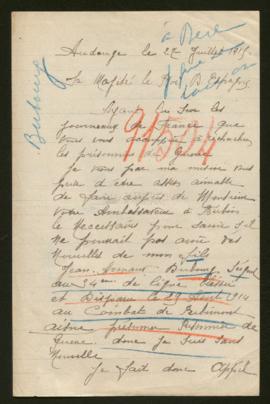 à
Audenge le 22 Juillet 1915
Sa Majesté le Roi D'Espagne
Dubourg
Ayant Lu sur les
journeaux de France que
vous vous occupiez à rechercher
les prisonniers de Guerre
Je vous par ma missive vous
prie d etre assez aimable
de faire auprès de Monsieur
votre Ambassadeur à Berlin
le necessaire pour savoir s'il
Ne pourrait pas avoir des
Nouvelles de mon fils
Jean Dubourg
au 34eme de ligne
et Disparue le 29 Août 1914
au Combats de Ribemont
Aisne prisonnier de
Guerre donc je suis sans
Nouvelle
Je fait donc Appel